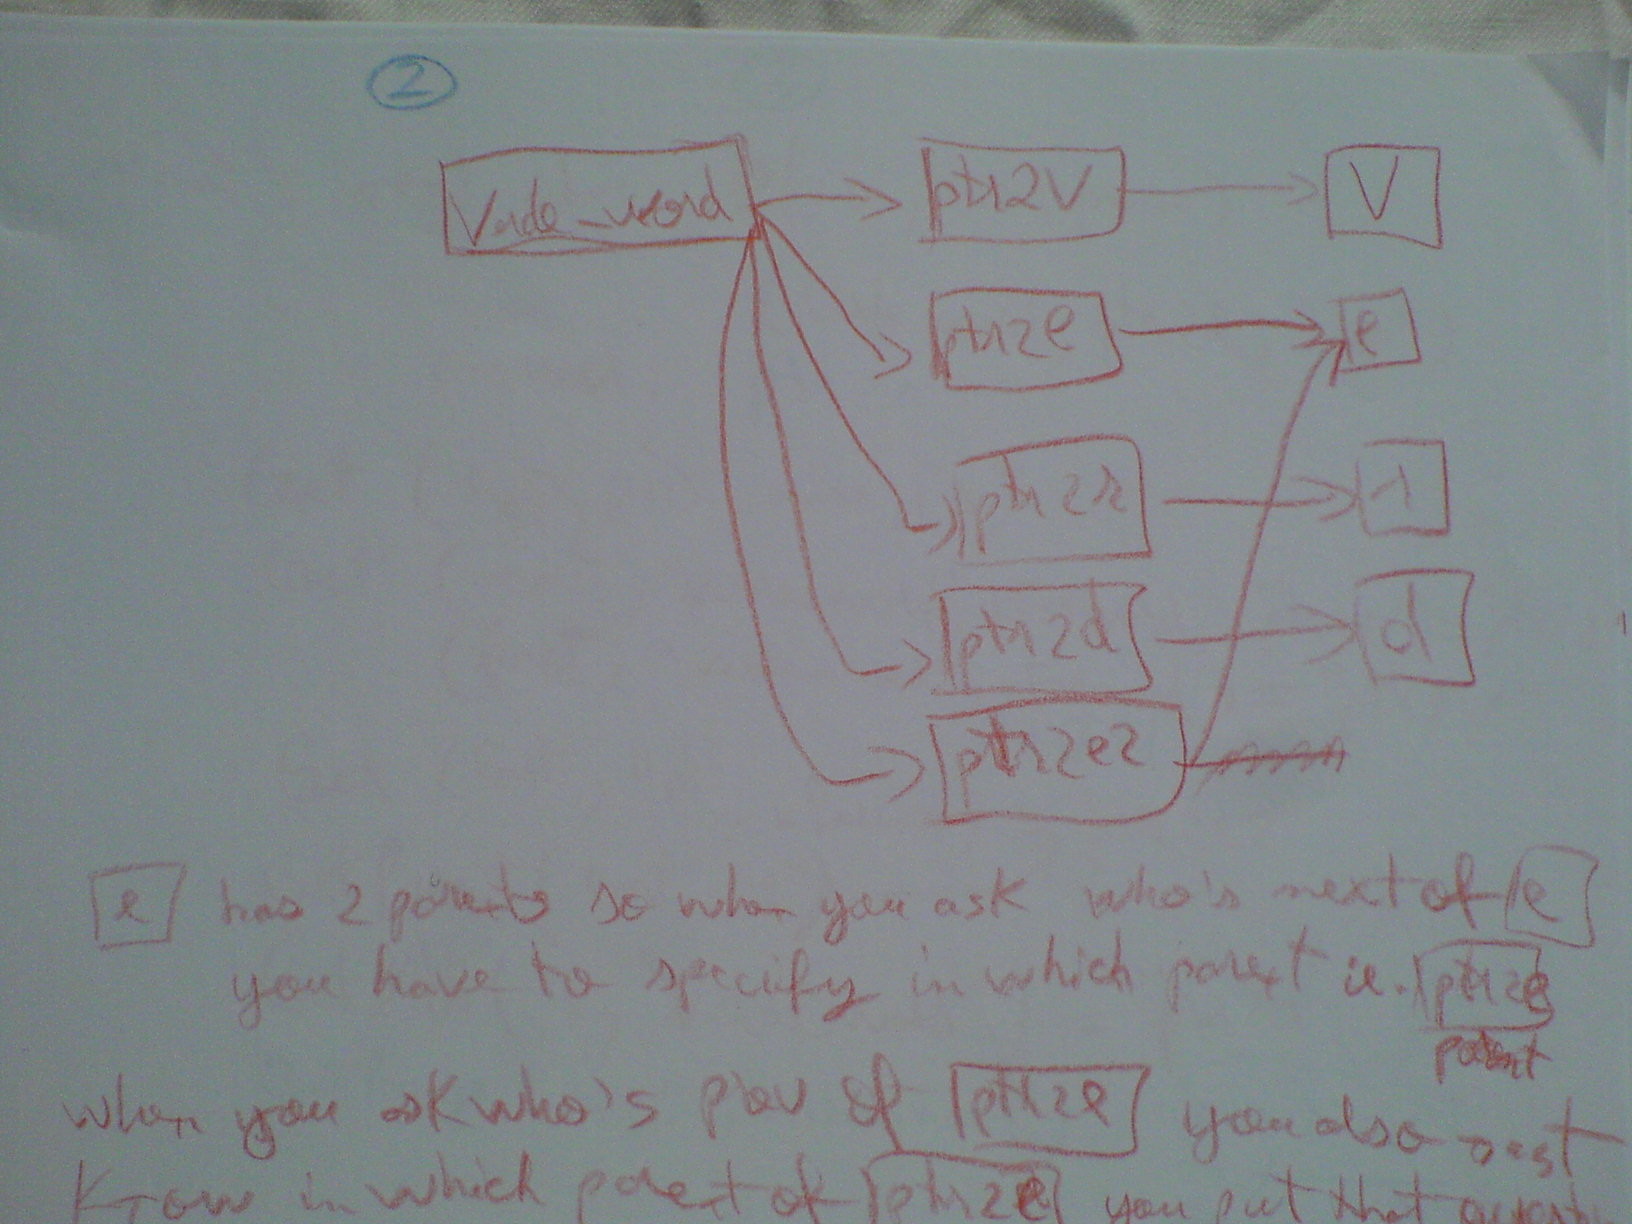 2
Verde_word
ptr2V
V
ptr2e
e
ptr2r
r
ptr2d
d
ptr2e2
e has 2 parents so when you ask who's next of e
you have to specify in which parent ie. ptr2e
parent
when you ask who's prev of ptr2e you also must
know in which parent of ptr2e you put that